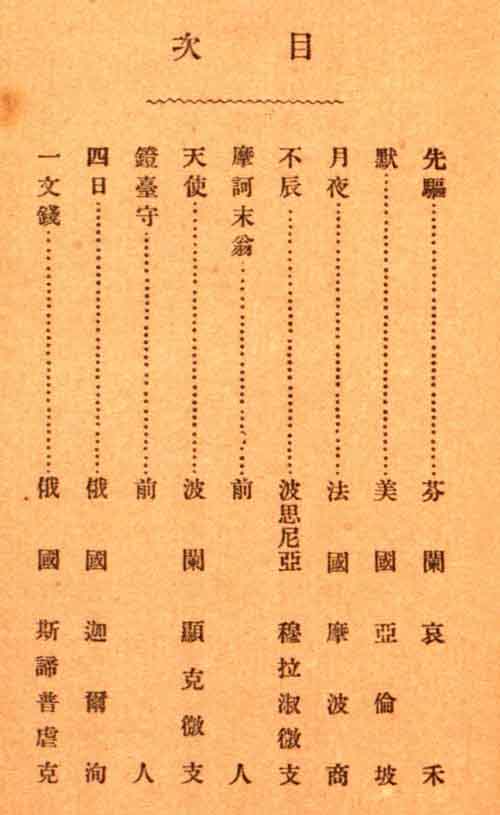 目次
先驅……芬蘭哀禾
默……美國亞倫坡
月夜……法國摩波商
不辰……波思尼亞穆拉淑微支
摩訶末翁……前人
天使……波蘭顯克微支
鐙臺守……前人
四日……俄國迦爾洵
一文錢……俄國斯諦普虐克